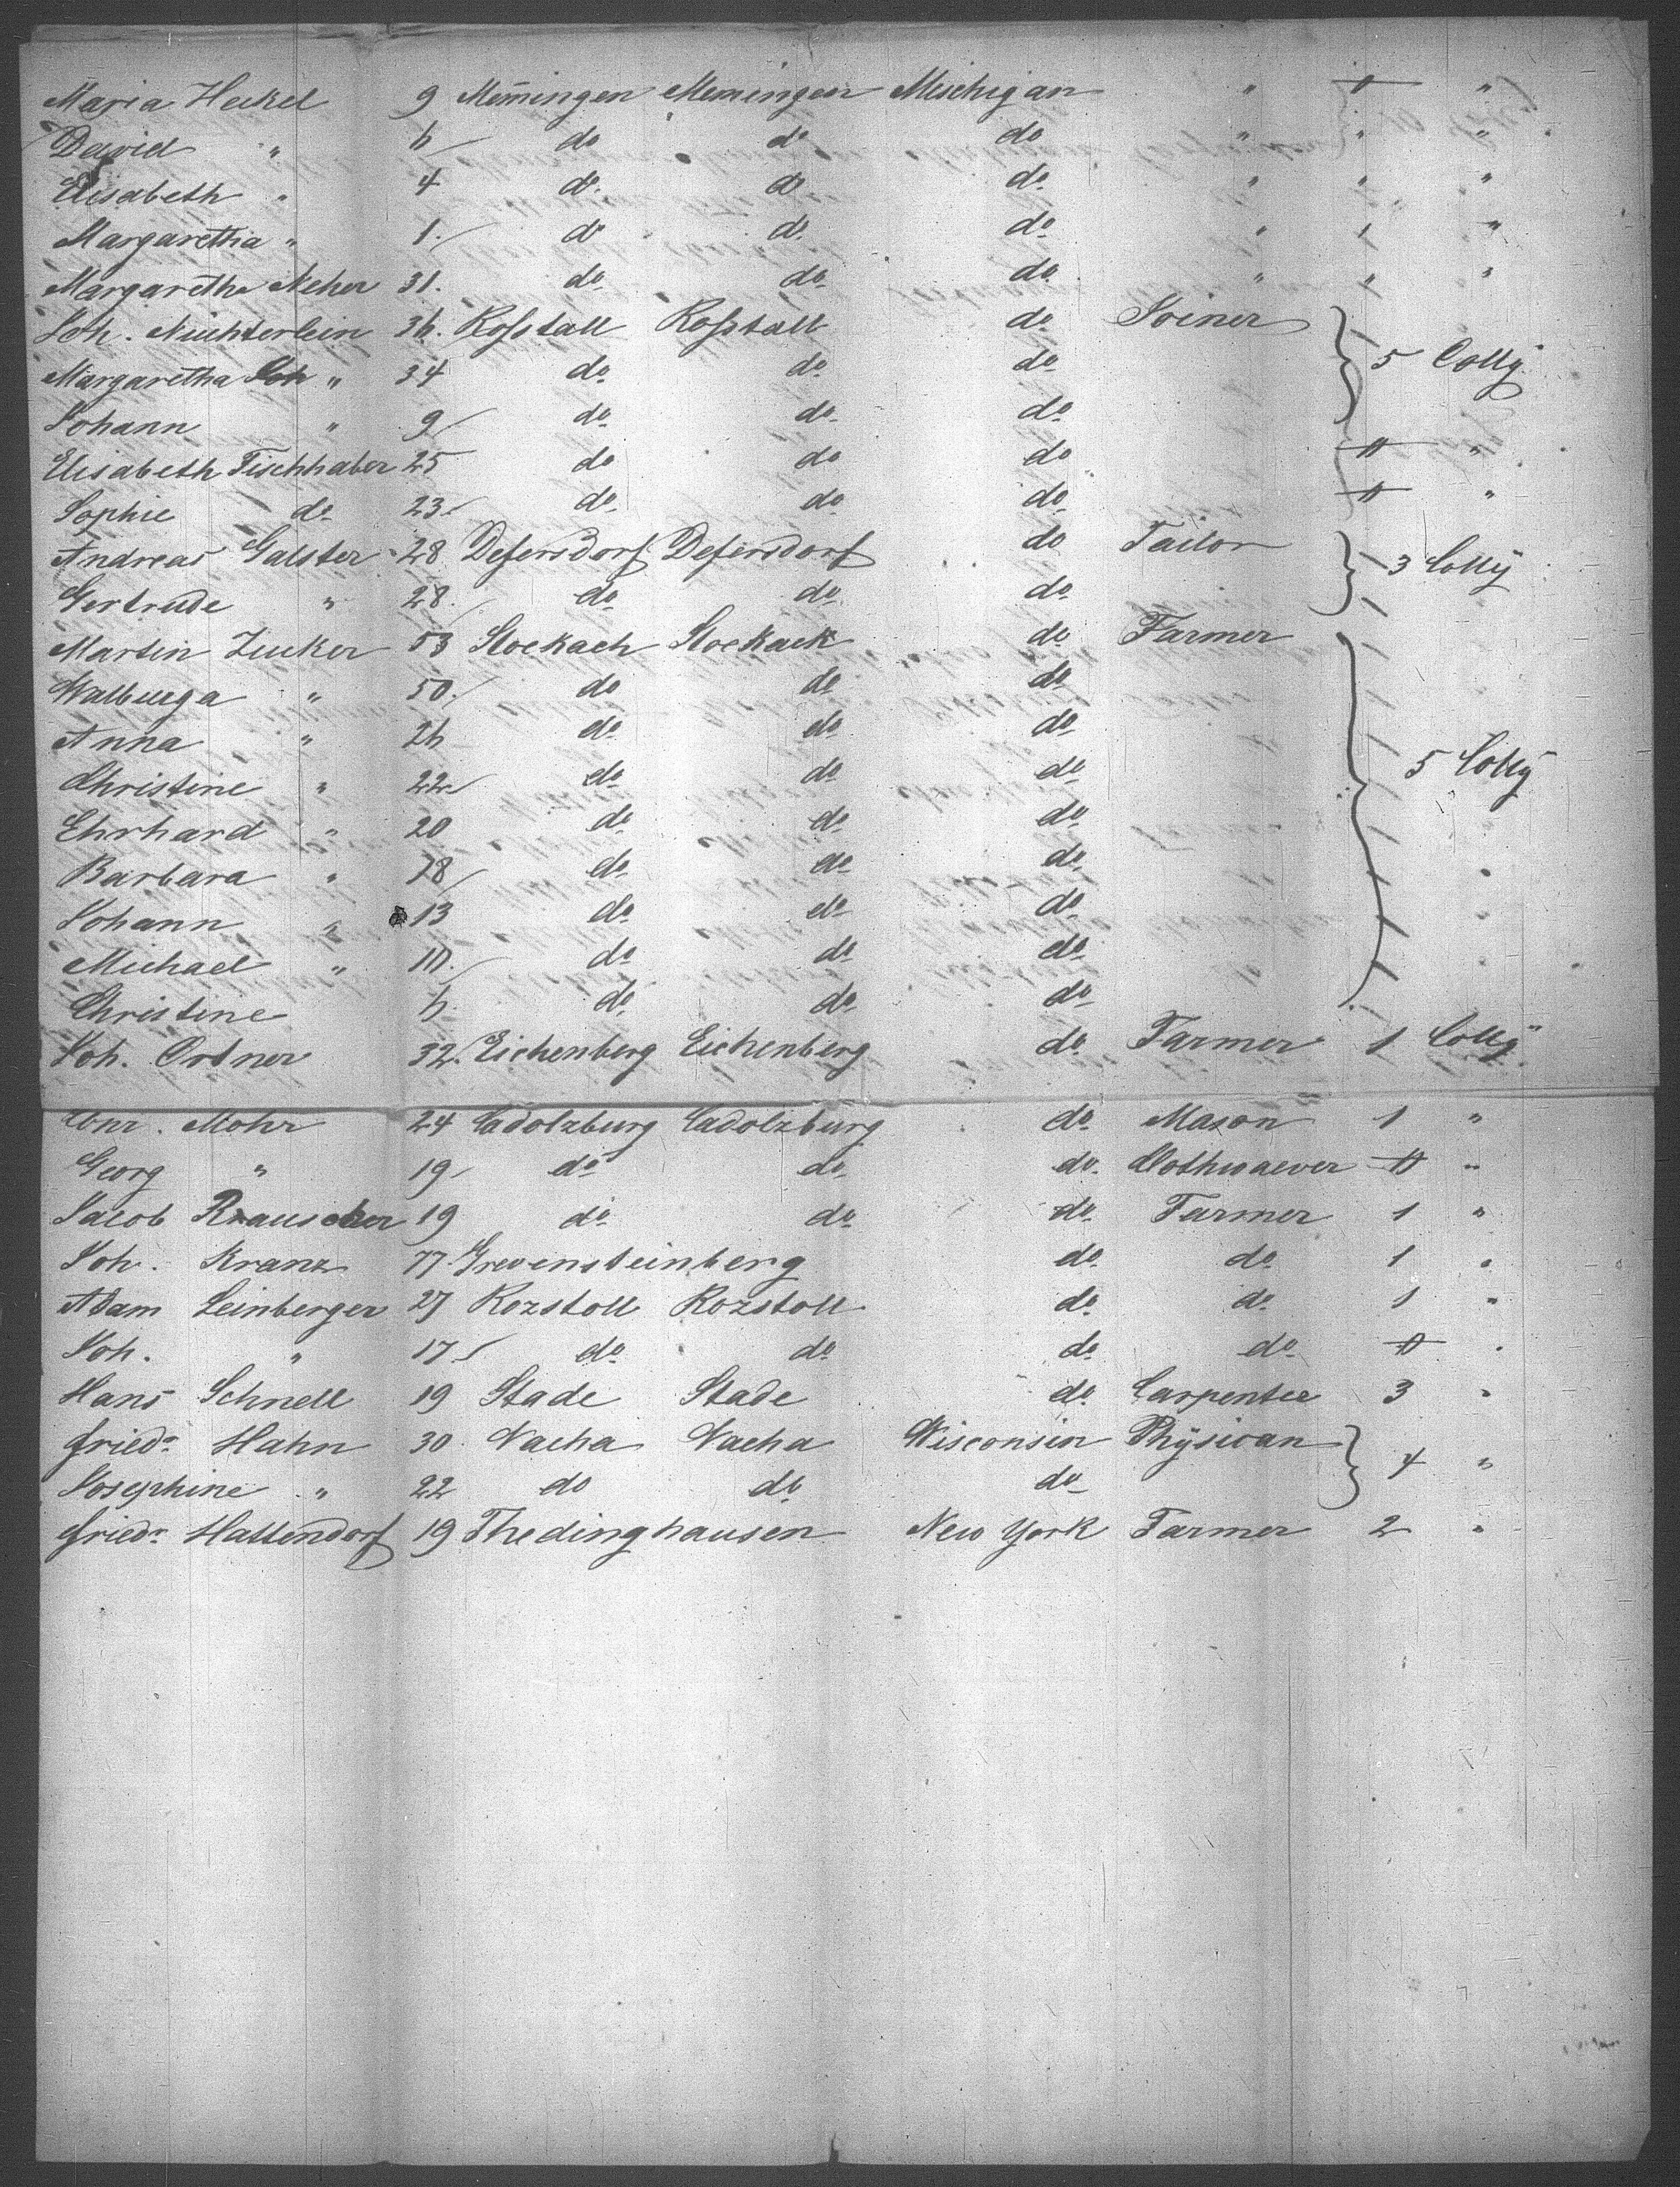 Maria Heckel 9 Memingen Memingen Mischigan " 0 "
David " 6 do do do " " "
Elisabeth " 4 do do do " " "
Margaretha " 1. do do do " " "
Margarethe Neher 31. do do do " " "
Joh. Nüchterlein 36. Roßtall Roßtall do Joiner 5 Colly
Margaretha " 34 do do do
Johann " 9 do do do
Elisabeth Fischhaber 25 do do do 0 "
Sophie do 23. do do do 0 "
Andreas Galster 28 Defersdorf Defersdorf do Tailor 3 Colly
Gertrude " 28. do do do
Martin Zucker 53 Stockach Stockach do Farmer
Walburga " 50. do do do
Anna " 26 do do do
Christine " 22 do do do 5 Colly
Ehrhard " 20 do do do
Barbara " 18 do do do
Johann " 13 do do do
Michael " 10. do do do
Christine 6 do do do
Joh. Ortner 32. Eichenberg Eichenberg do Farmer 1 Colly
Conr. Mohr 24 Cadolzburg Cadolzburg do Mason 1 "
Georg " 19 do do do Clothwaever 0 "
Jacob Rauscher 19 do do do Farmer 1 "
Joh. Kranz 77. Grevensteinberg do do 1 "
Adam Leinberger 27 Rozstoll Rozstoll do do 1 "
Joh. " 17 do do do do 0 "
Hans Schnell 19 Stade Stade do Carpenter 3 "
Friedr. Hahn 30 Vacha Vacha Wisconsin Physican 4 "
Josephine " 22 do do do
Friedr. Hattendorf 19 Thedinghausen New York Farmer 2 "